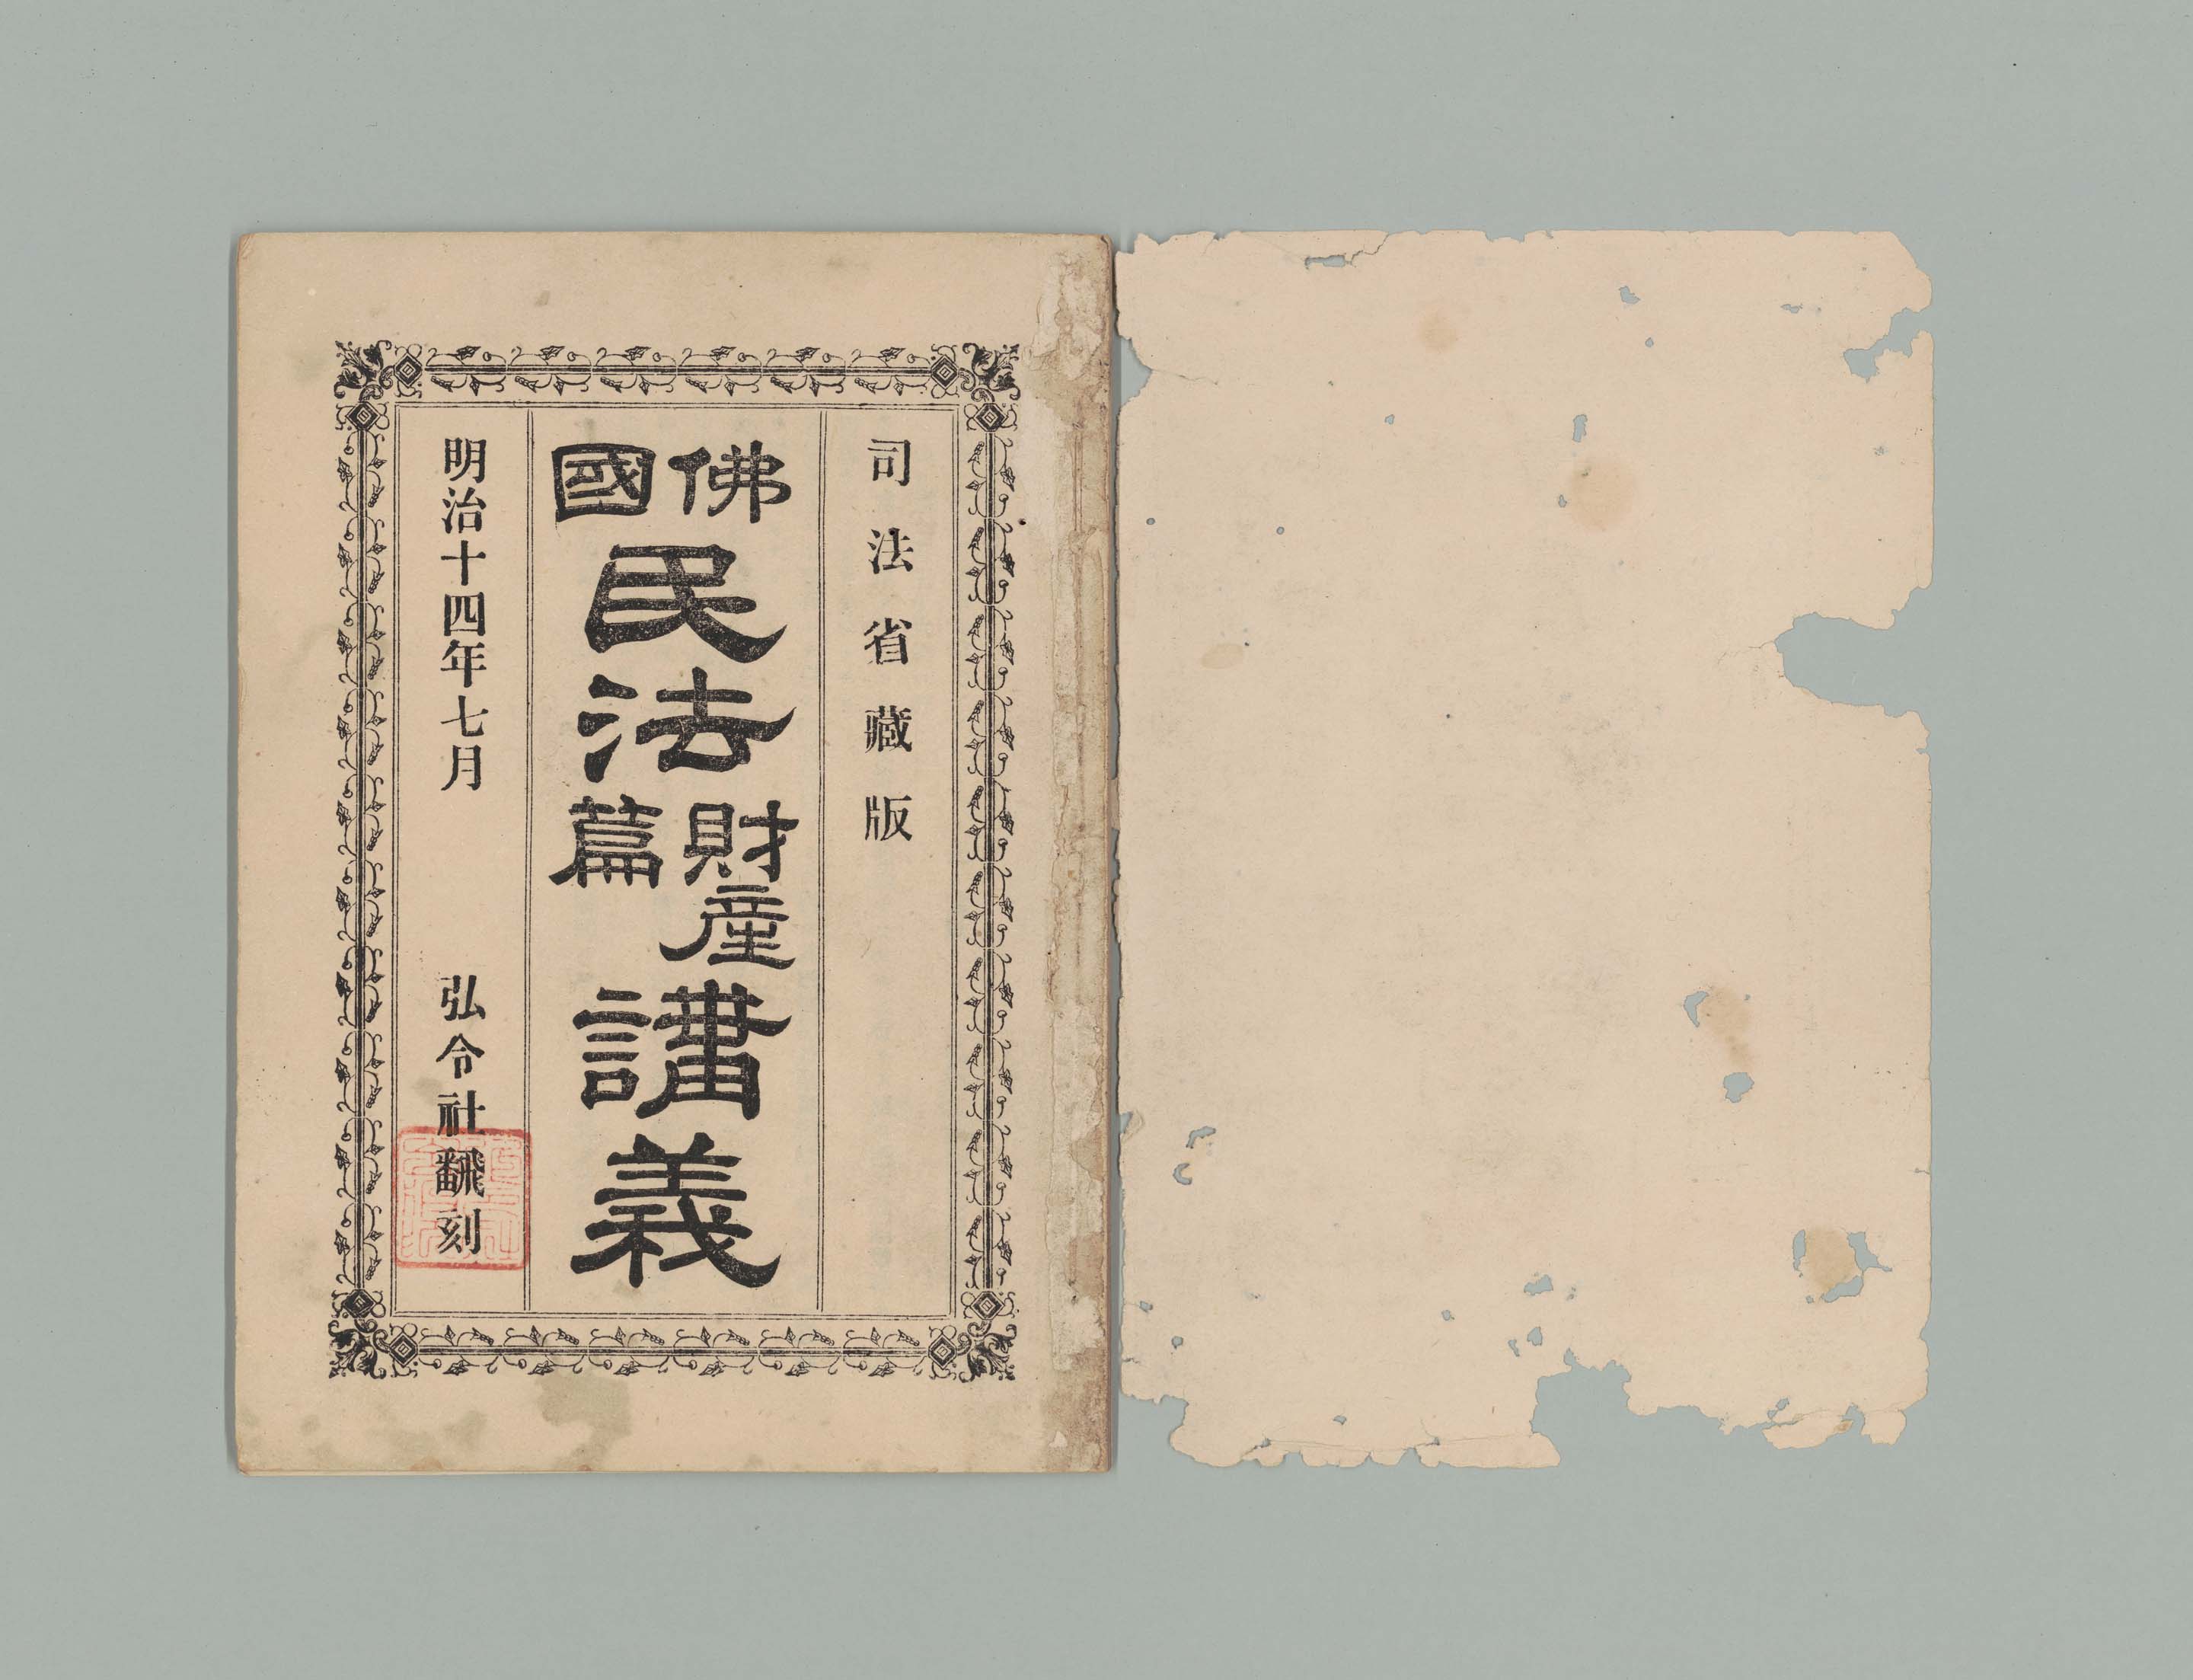 司法省藏版
佛國民法財産篇講義
明治十四年七月　弘令社飜刻